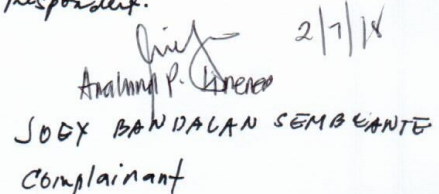 respondent.
2/7/18
P. Jimenea
JOEY BANDALAN SEMBLANTE
Complainant